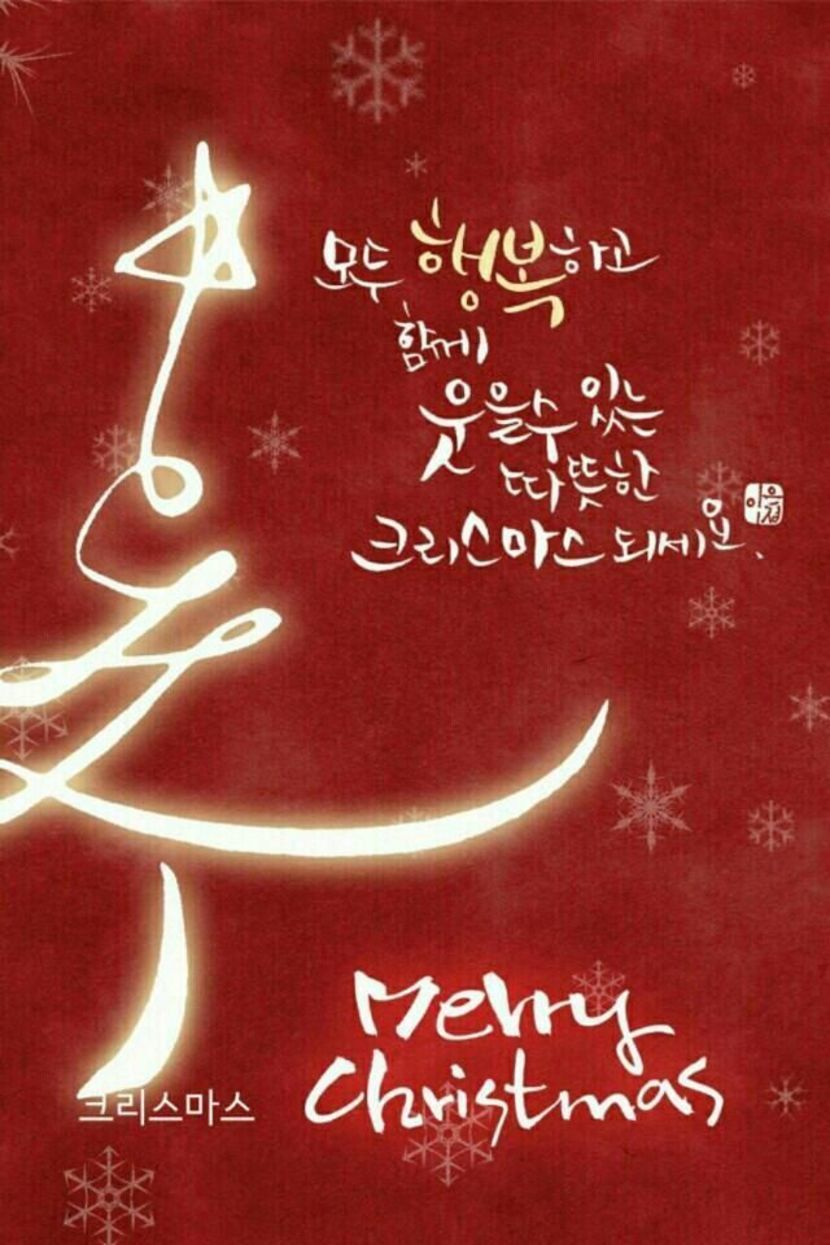 모두 행복하고
함께
웃을수 있는
따뜻한
크리스마스 되세요.
Merry
Christmas
크리스마스